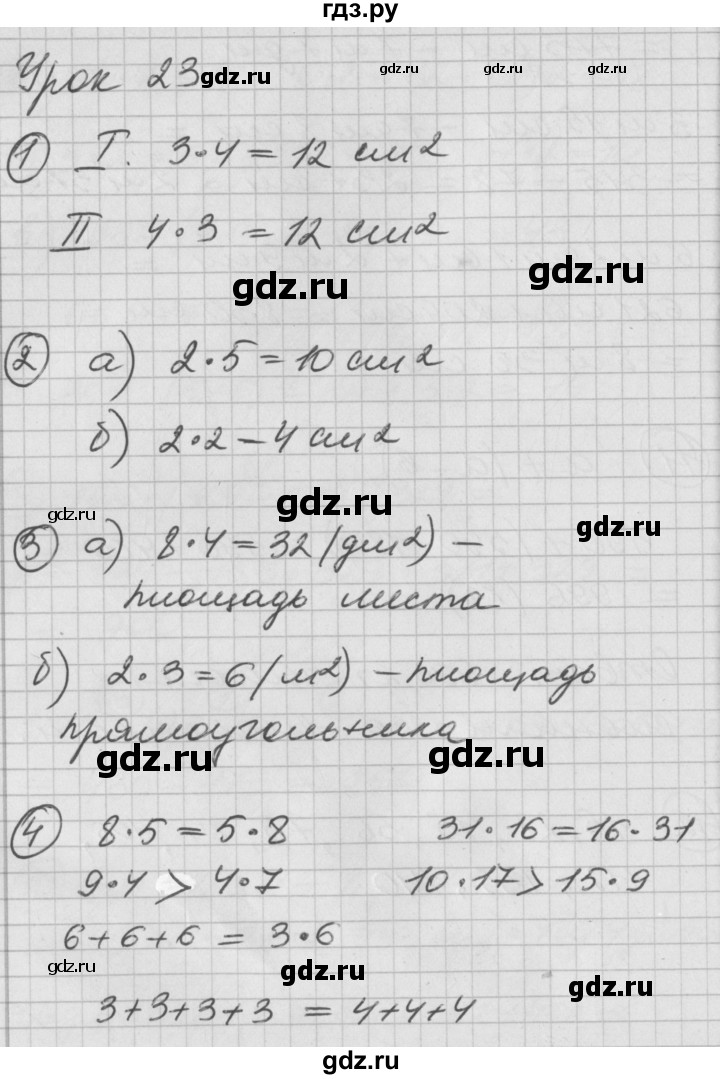 гдз.ру
Урок 23 gdz.ru gdz.ru gdz.ru gdz.ru
1 I. 3·4 = 12 см2
II 4·3 = 12 см2
gdz.ru gdz.ru
2 а) 2·5 = 10 см2
б) 2·2 – 4 см2
gdz.ru gdz.ru gdz.ru
3 а) 8·4 = 32 (дм2) –
площадь листа
б) 2·3 = 6 (м2) – площадь
прямоугольника
gdz.ru gdz.ru
4 8·5 = 5·8 31·16 = 16·31
9·4 > 4·7 10·17 > 15·9
6+6+6 = 3·6
gdz.ru gdz.ru gdz.ru
3+3+3+3 = 4+4+4
gdz.ru